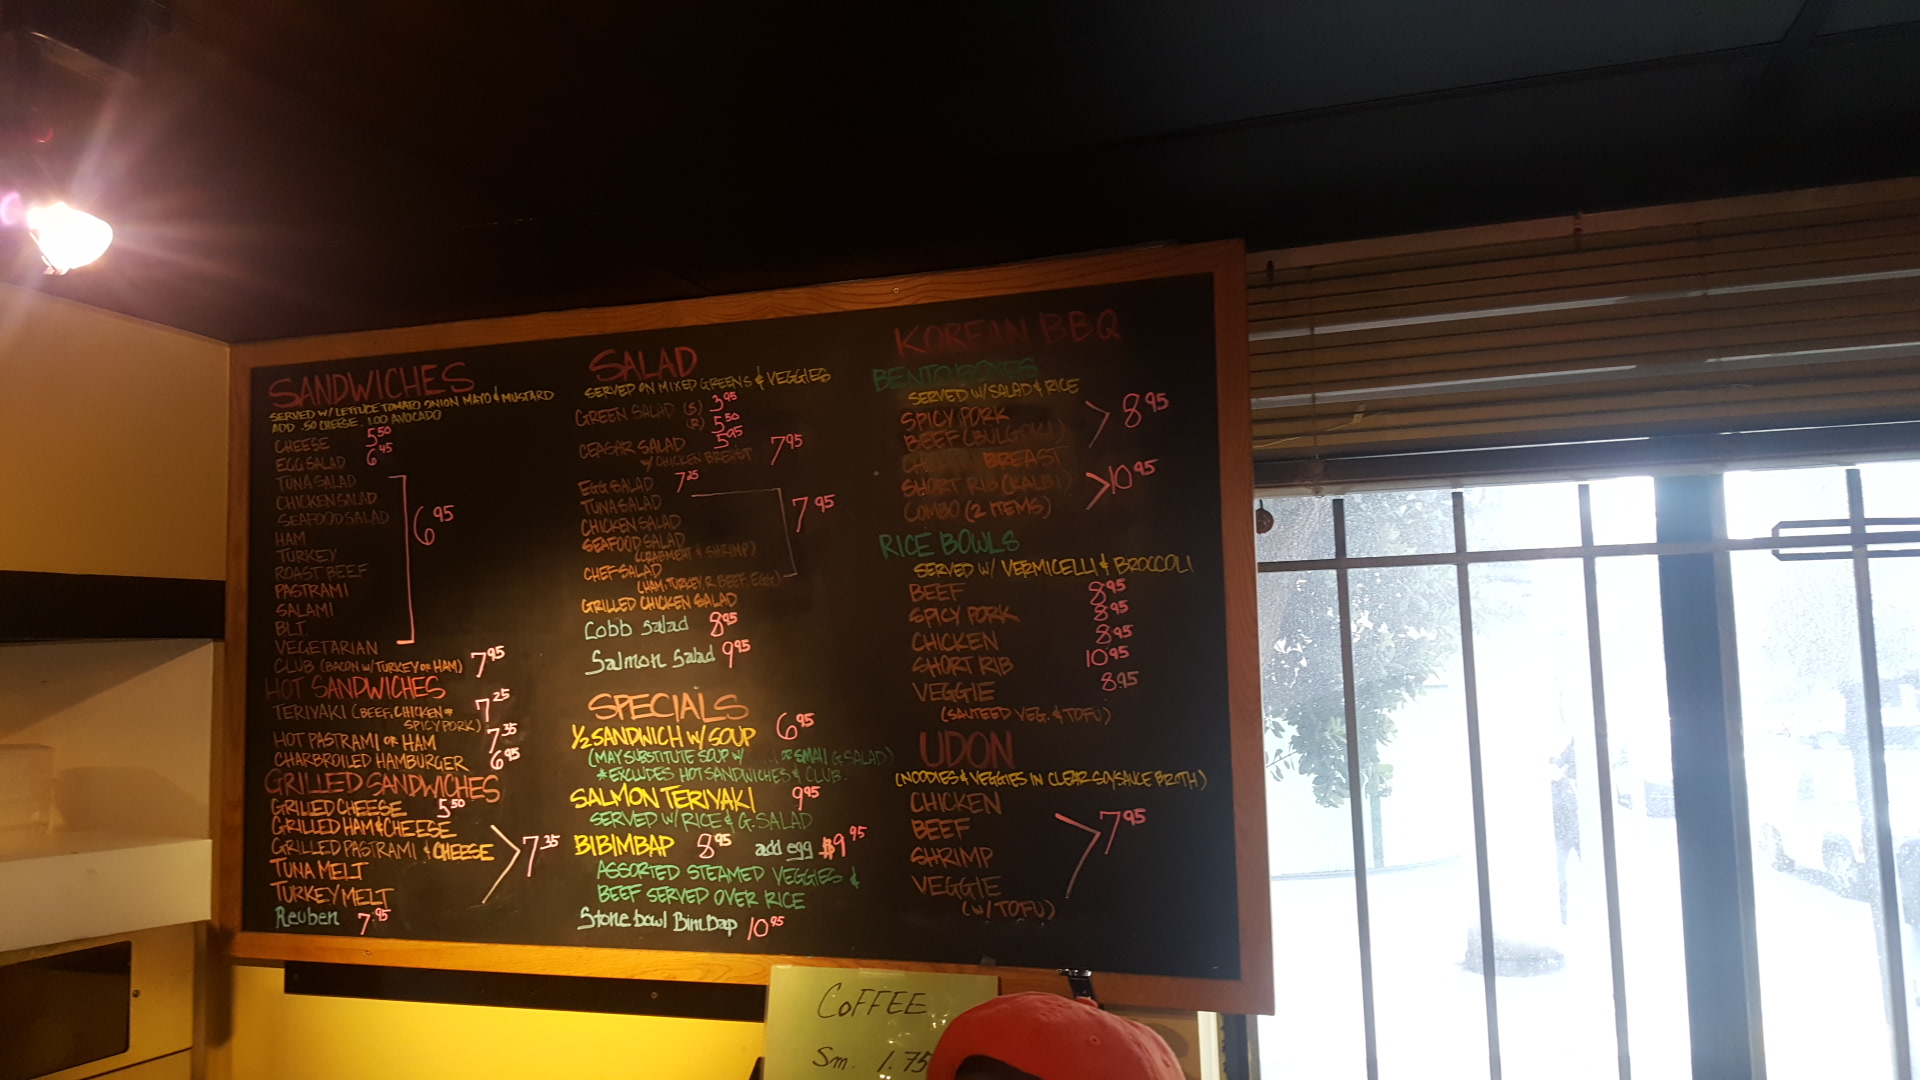 SANDWICHES
SERVED W/ LETTUCE TOMATO ONION MAYO & MUSTARD
ADD .50 CHEESE, 1.00 AVOCADO
CHEESE 5.50
EGG SALAD 6.45
TUNA SALAD
CHICKEN SALAD
SEAFOOD SALAD
HAM
TURKEY
ROAST BEEF
PASTRAMI
SALAMI
BLT
VEGETARIAN
6.95
CLUB (BACON W/ TURKEY OR HAM) 7.95
HOT SANDWICHES
TERIYAKI (BEEF, CHICKEN OR
SPICY PORK) 7.25
HOT PASTRAMI OR HAM 7.35
CHARBROILED HAMBURGER 6.95
GRILLED SANDWICHES
GRILLED CHEESE 5.50
GRILLED HAM & CHEESE
GRILLED PASTRAMI & CHEESE
TUNA MELT
TURKEY MELT
7.35
Reuben 7.95
SALAD
SERVED ON MIXED GREENS & VEGGIES
GREEN SALAD (S) 3.95
(R) 5.50
CEASAR SALAD 5.95
W/ CHICKEN BREAST 7.95
EGG SALAD 7.25
TUNA SALAD
CHICKEN SALAD
SEAFOOD SALAD
(CRABMEAT & SHRIMP)
CHEF SALAD
(HAM, TURKEY, R. BEEF, EGG)
GRILLED CHICKEN SALAD
7.95
Cobb Salad 8.95
Salmon Salad 9.95
SPECIALS
1/2 SANDWICH W/ SOUP 6.95
(MAY SUBSTITUTE SOUP W/ OR SMALL G. SALAD)
*EXCLUDES HOT SANDWICHES & CLUB.
SALMON TERIYAKI 9.95
SERVED W/ RICE & G. SALAD
BIBIMBAP 8.95 add egg $9.95
ASSORTED STEAMED VEGGIES &
BEEF SERVED OVER RICE
Stone bowl BimBap 10.95
KOREAN BBQ
BENTO BOXES
SERVED W/ SALAD & RICE
SPICY PORK
BEEF (BULGOKI)
CHICKEN BREAST
8.95
SHORT RIB (KALBI)
COMBO (2 ITEMS)
10.95
RICE BOWLS
SERVED W/ VERMICELLI & BROCCOLI
BEEF 8.95
SPICY PORK 8.95
CHICKEN 8.95
SHORT RIB 10.95
VEGGIE 8.95
(SAUTEED VEG. & TOFU)
UDON
(NOODLES & VEGGIES IN CLEAR SOYSAUCE BROTH)
CHICKEN
BEEF
SHRIMP
VEGGIE
(W/ TOFU)
7.95
COFFEE
Sm. 1.75